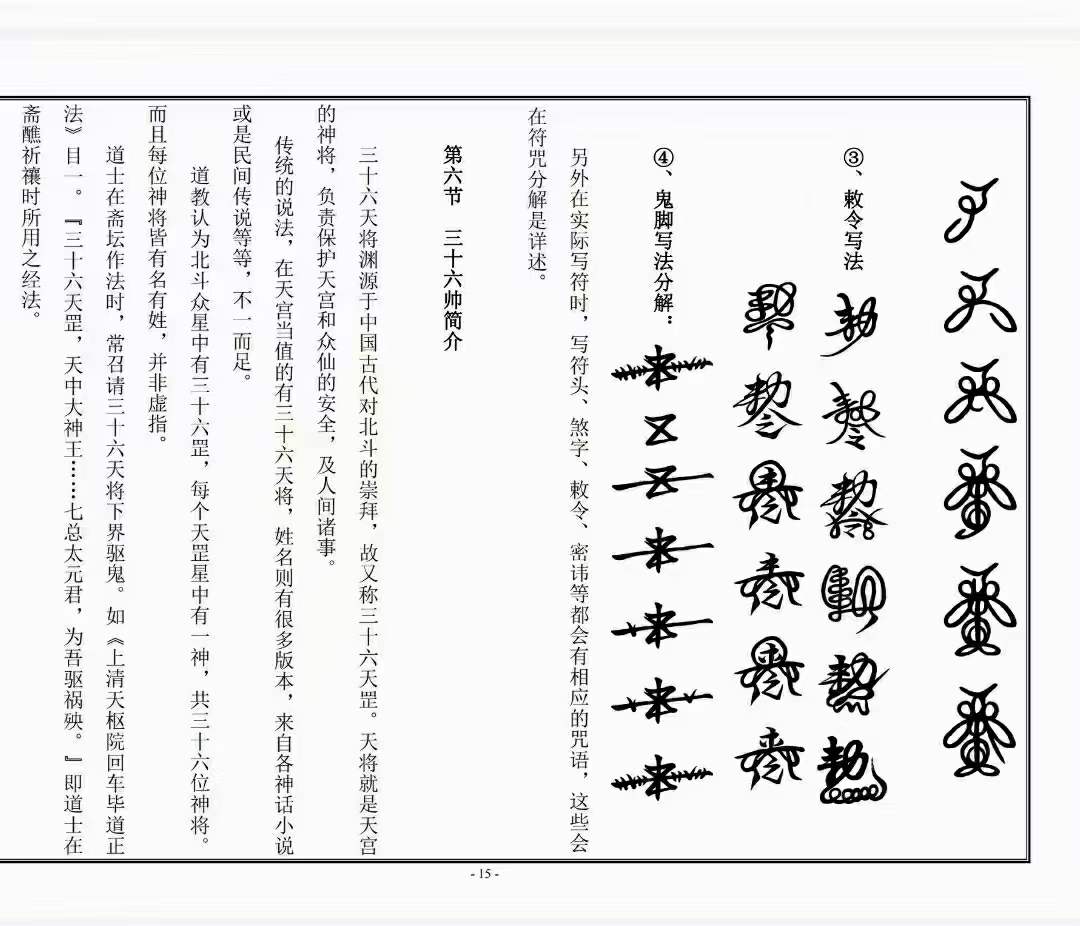 ③、敕令写法
④、鬼脚写法分解：
另外在实际写符时，写符头、煞字、敕令、密讳等都会有相应的咒语，这些会
在符咒分解是详述。
第六节　三十六帅简介
三十六天将渊源于中国古代对北斗的崇拜，故又称三十六天罡。天将就是天宫
的神将，负责保护天宫和众仙的安全，及人间诸事。
传统的说法，在天宫当值的有三十六天将，姓名则有很多版本，来自各神话小说
或是民间传说等等，不一而足。
道教认为北斗众星中有三十六罡，每个天罡星中有一神，共三十六位神将。
而且每位神将皆有名有姓，并非虚指。
道士在斋坛作法时，常召请三十六天将下界驱鬼。如《上清天枢院回车毕道正
法》目一。『三十六天罡，天中大神王……七总太元君，为吾驱祸殃。』即道士在
斋醮祈禳时所用之经法。
- 15 -